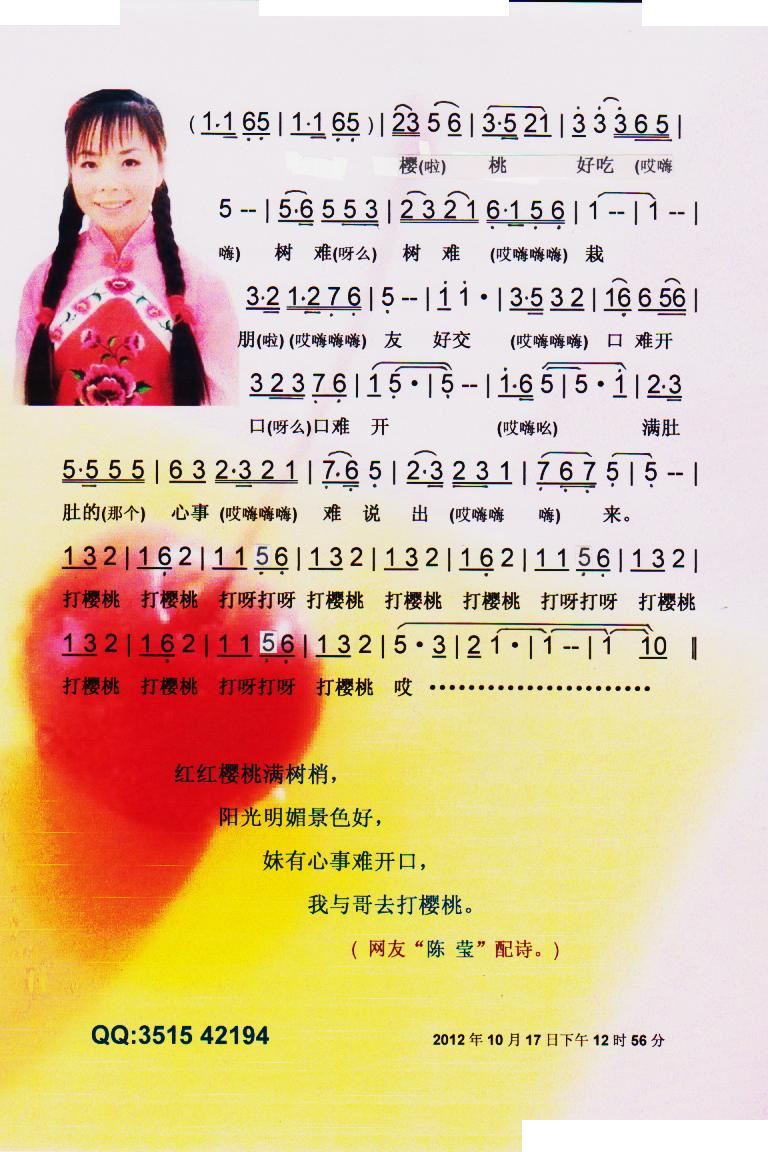 (1·1 65 | 1·1 65 )| 23 5 6 | 3·5 21 | 3 3 3 6 5 |
樱(啦) 桃 好吃 (哎嗨
5 -- | 5·6 5 5 3 | 2 3 2 1 6·1 5 6 | 1 -- | 1 -- |
嗨) 树 难(呀么) 树 难 (哎嗨嗨嗨) 栽
3·2 1·2 7 6 | 5 -- | 1 1 · | 3·5 3 2 | 16 6 56 |
朋(啦) (哎嗨嗨嗨) 友 好交 (哎嗨嗨嗨) 口 难开
3 2 3 7 6 | 1 5 · | 5 -- | 1·6 5 | 5 · 1 | 2·3
口(呀么)口难 开 (哎嗨吆) 满肚
5·5 5 5 | 6 3 2·3 2 1 | 7·6 5 | 2·3 2 3 1 | 7 6 7 5 | 5 -- |
肚的(那个) 心事 (哎嗨嗨嗨) 难 说 出 (哎嗨嗨 嗨) 来。
1 3 2 | 1 6 2 | 1 1 5 6 | 1 3 2 | 1 3 2 | 1 6 2 | 1 1 5 6 | 1 3 2 |
打樱桃 打樱桃 打呀打呀 打樱桃 打樱桃 打樱桃 打呀打呀 打樱桃
1 3 2 | 1 6 2 | 1 1 5 6 | 1 3 2 | 5 · 3 | 2 1 · | 1 -- | 1 10 ‖
打樱桃 打樱桃 打呀打呀 打樱桃 哎 ·······················
红红樱桃满树梢，
阳光明媚景色好，
妹有心事难开口，
我与哥去打樱桃。
( 网友“陈 莹”配诗。)
QQ:3515 42194 2012 年 10 月 17 日下午 12 时 56 分